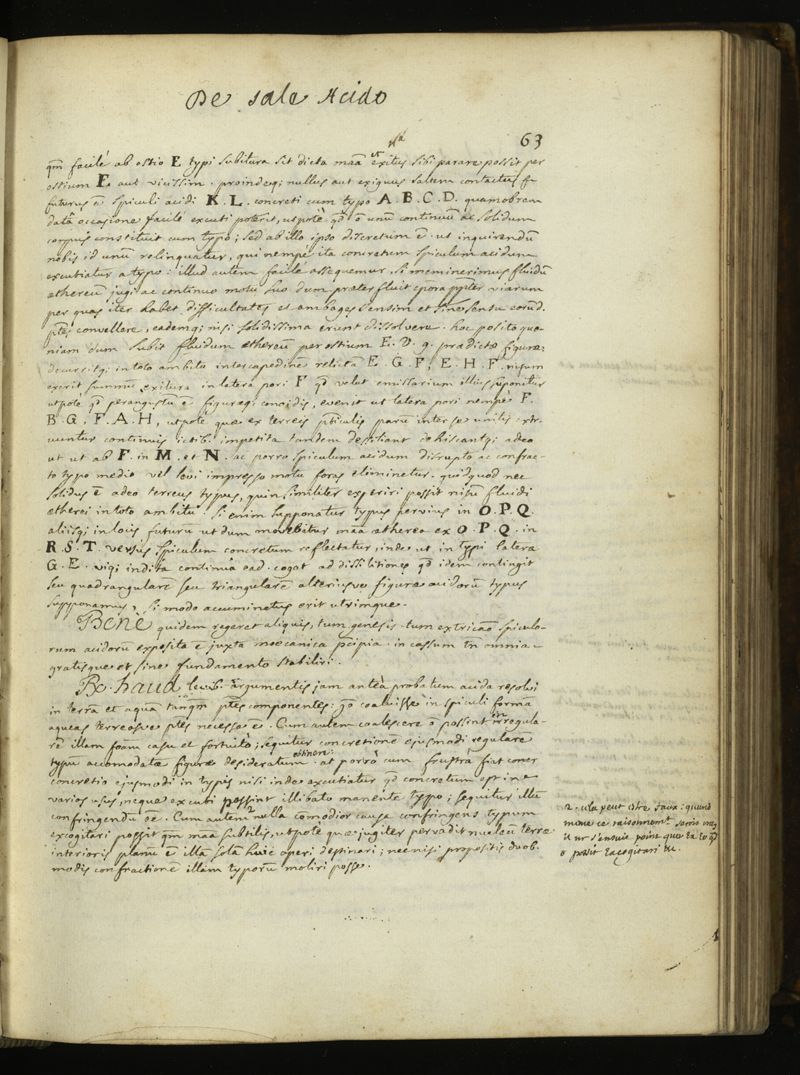 De sale Acido
63
qm̃ facile ab ostio E typi subitura sit dicta maã et exitus sibi parare possit per
ostium E aut vicissim. proindeq; nullus aut exiguus saltem contactus
futurus ē spiculi acidi K. L. concreti cum typo A. B. C. D. quamobrem
datâ occasione facile excuti poterit, utpote qd̃ o unũ continuũ ac solidum
corpus constituit cum typo; sed ab illo ipso discretum ē. ut inquirendũ
nobis id unũ relinquatur, qui nempe ita concretum spiculum acidum
excutiatur a typo: illud autem facile assequemur, si meminerimus fluidũ
æthereũ jugi ac continuo motu suo dum præterfluit viarum
per quas iter habet difficultates et ambages sensim et sine sensu eorũd.
ptēs convellere, eademq; nisi solidissima erunt dissolvere. hoc posito quo
niam dum subit fluidum æthereũ per ostium E. D. g. prædictæ figuræ
decursitq; in toto ambitu intercapedine relictâ E. G. F, E. H. F. nisum
exerit summũ exitura in latera pori F qd̃ velut emissarium illius supponitur
utpote qd̃ perangustũ ē figuræq; conoidis, evenit ut latera pori nempe F.
B. G. F. A. H, utpote quæ ex terreis pticulis parũ inter se unitis
untur continuis ictib. impetita tandem dehiscantq; adeo
ut ut ab F. in M. et N. ac porro spiculum acidum disrupto ac confrac-
to typo medio vel levi impresso motu foras eliminetur. qui quod nec
solidus ē adeo terreus typus, quin similiter experiri possit nisũ fluidi
ætherei in toto ambitu. si enim supponatur typus pervius in O. P. Q.
aliisq; in locis futurũ ut dum movebitur maã ætherea ex O. P. Q. in
R. S. T. versus spiculum concretum reflectatur, inde ut in typi latera
G. E. viqi indita continua ead. cogat ad dissilitiones qd̃ idem contingit
seu quadrangularē seu triangularē alteriusve figuræ acidorũ typus
supponamus, si modo accuminetus erit utrimque.
Bene quidem regeret aliquis, tum genesis tum extricaõ spiculo-
rum acidorũ exposita ē juxta mœcanica pcipia. in cassum tñ omnia
gratisque et sine fundamento stabiliri.
Rx. haud levib. argumentis jam antea probatum acida resolvi
in terra et aqua tanqm̃ ptēs componentes: qd̃ coaluisse in spiculi forma
aqueas terreasve ptēs necesse ē. Cum autem coalescere o possint in regula-
rē illam foam casu et fortuito; sequitur concretione ejusmodi regularē
typũ accomodatæ figuræ desideratum obtineri. at porro cum frustra fiat concr
concretio ejusmodi in typis nisi inde excutiatur qd̃ concretum est in
varios usus, neque excuti possint illibato manente typo; sequitur illũ
confringendũ ēē. Cum autem nulla comodior causa confringens typum
excogitari possit qm̃ maã subtilis, utpote quæ jugiter pervadit nucleũ terræ
interioris planũ ē illâ solâ huic operi destinari; nec nisi propositis duob.
modis confractionē illam typorũ moliri posse.
2. cela peut etre faux: quand
meme ce raisonnemt̃ seroit
il ne s'ensuit point que
o possit excogitari